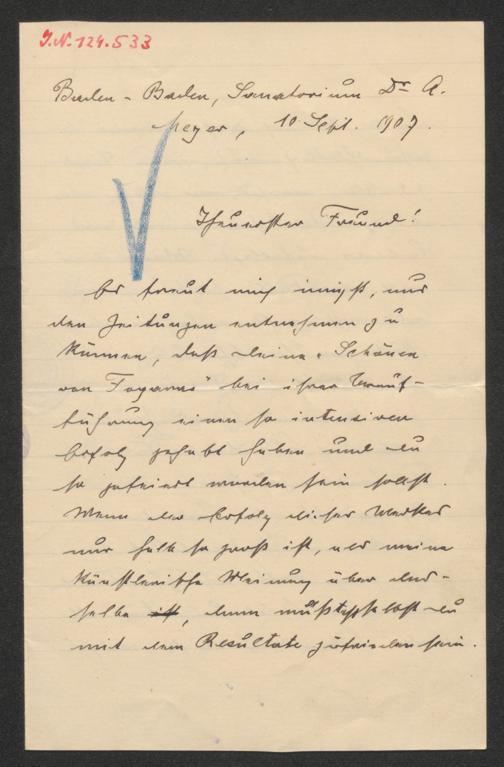 J.N. 124.533
Baden-Baden, Sanatorium Dr A.
Meyer, 10 Sept. 1907.
Theuerster Freund!
Es freut mich innigst, aus
den Zeitungen entnehmen zu
können, daß Deine "Schönen
von Fogaras" bei ihrer Urauf-
führung einen so intensiven
Erfolg gehabt haben und Du
so gefeiert worden sein sollst.
Wenn der Erfolg dieses Werkes
nur halb so groß ist, als meine
künstlerische Meinung über das-
selbe ist, dann mußt selbst Du
mit dem Resultate zufrieden sein.